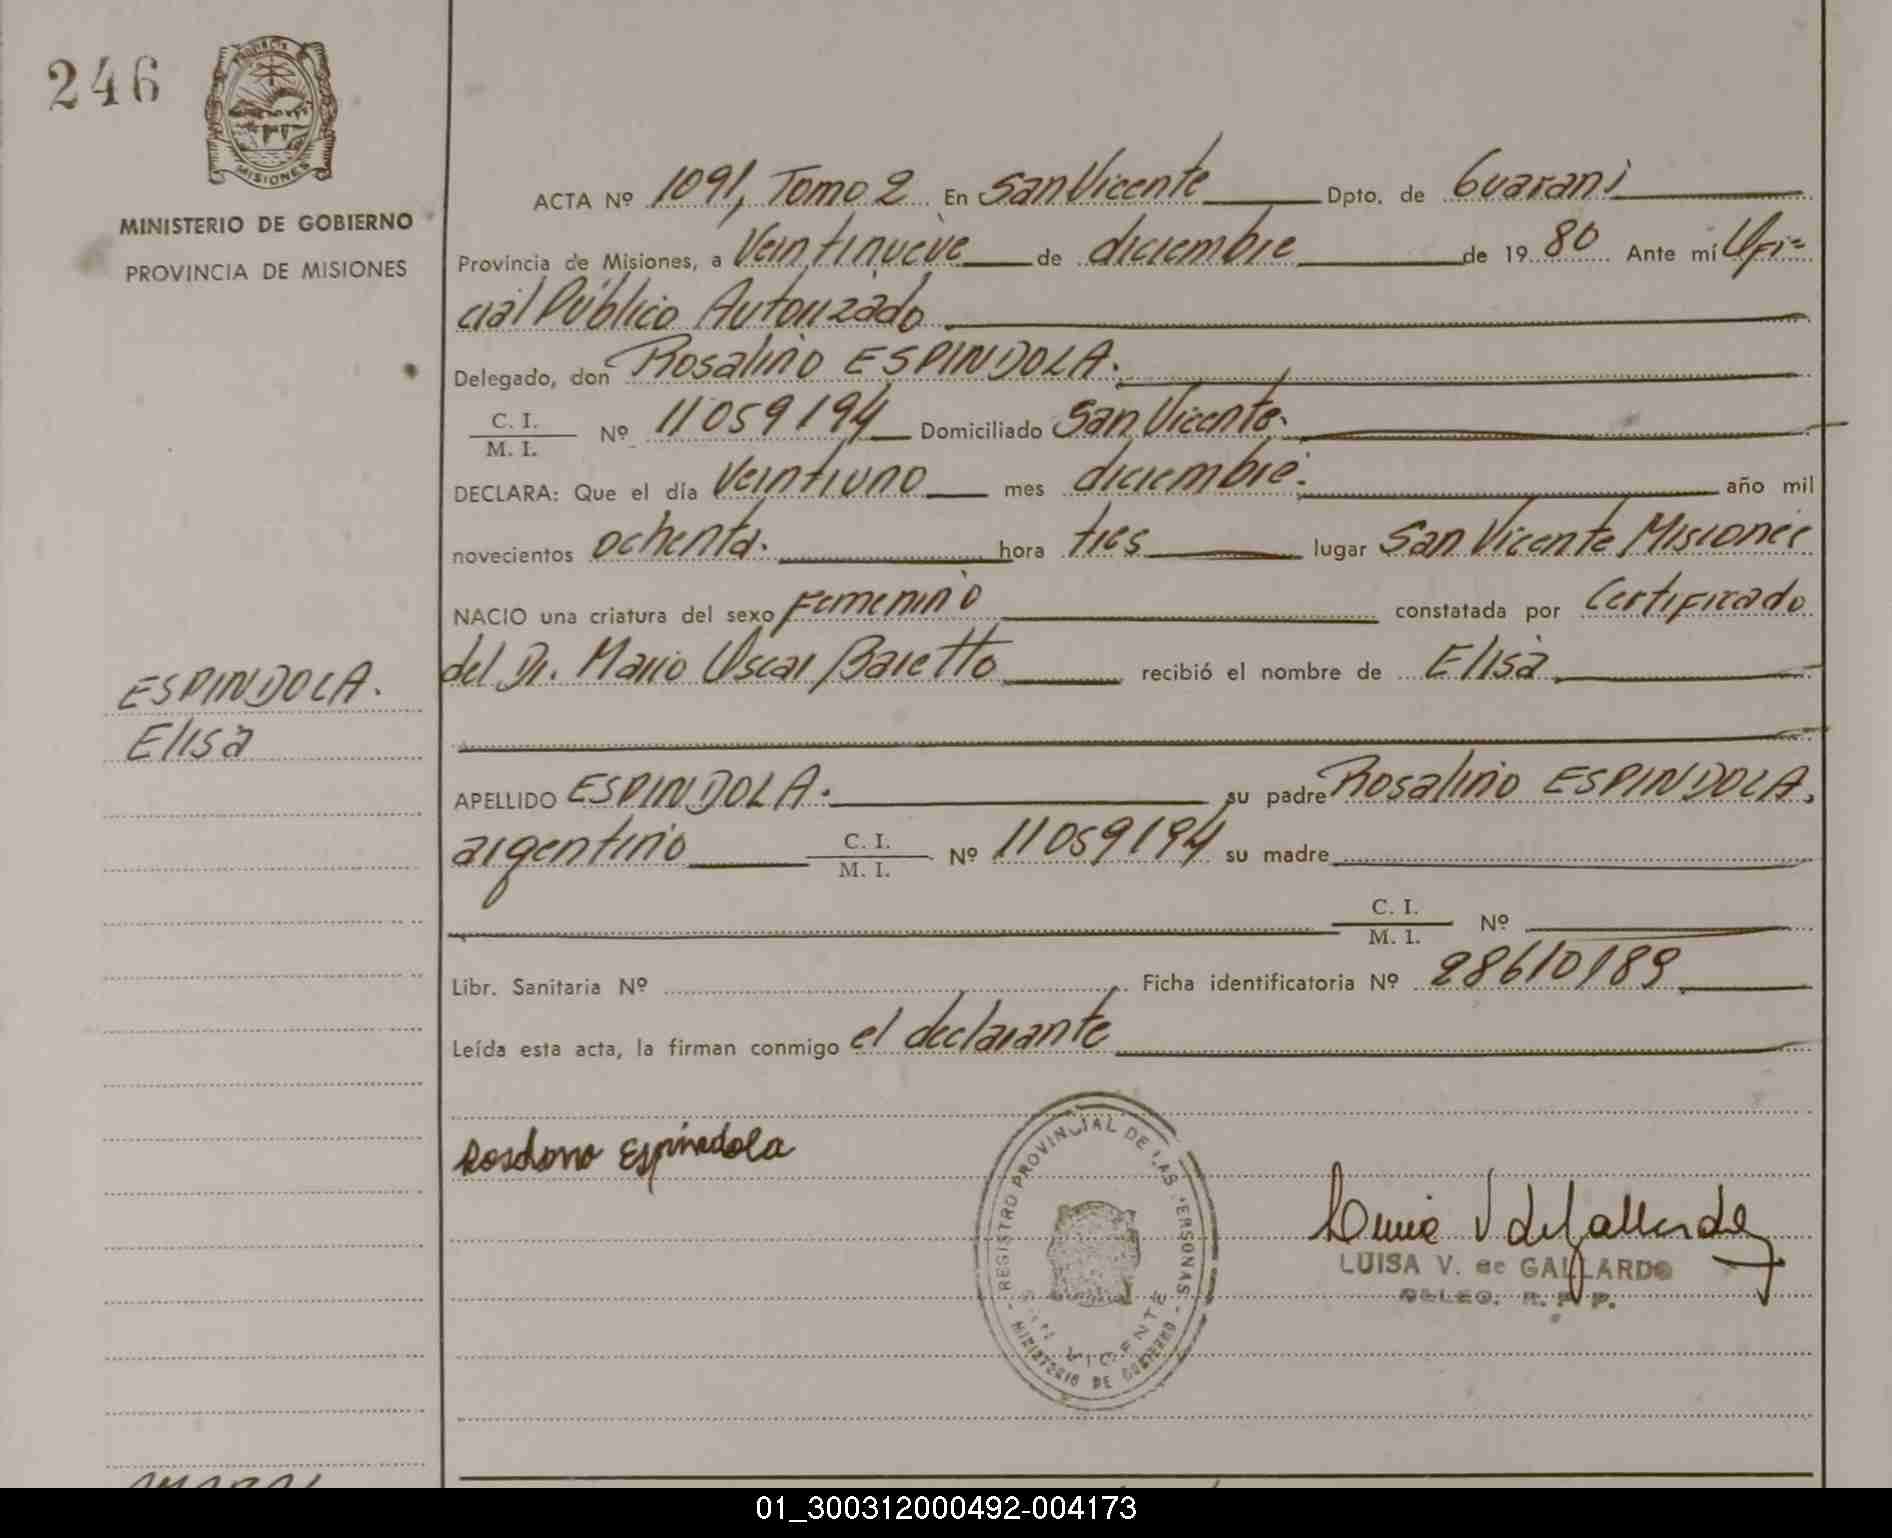 246
PROVINCIA DE
MISIONES
MINISTERIO DE GOBIERNO
PROVINCIA DE MISIONES
ACTA Nº 1091, Tomo 2 En San Vicente Dpto. de Guaraní
Provincia de Misiones, a Veintinueve de diciembre de 1980 Ante mí Ofi=
cial Público Autorizado
Delegado, don Rosalino ESPINDOLA.
C. I.
M. I. Nº 11059194 Domiciliado San Vicente.
DECLARA: Que el día Veintiuno mes diciembre. año mil
novecientos ochenta. hora tres lugar San Vicente Misiones
NACIO una criatura del sexo Femenino constatada por Certificado
del Dr. Mario Oscar Baretto recibió el nombre de Elisa
ESPINDOLA.
Elisa
APELLIDO ESPINDOLA. su padre Rosalino ESPINDOLA,
argentino C. I.
M. I. Nº 11059194 su madre
C. I.
M. I. Nº
Libr. Sanitaria Nº Ficha identificatoria Nº 28610189
Leída esta acta, la firman conmigo el declarante
Espindola
REGISTRO PROVINCIAL DE LAS PERSONAS
SAN VICENTE
MINISTERIO DE GOBIERNO
V de Gallardo
LUISA V. de GALLARDO
DELEG. R. P. P.
01_300312000492-004173